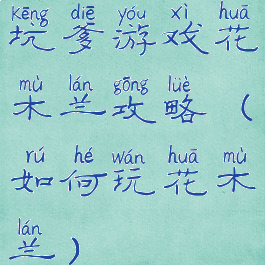 kēng diē yóu xì huā
坑爹游戏花
mù lán gōng lüè
木兰攻略（
rú hé wán huā mù
如何玩花木
lán
兰）